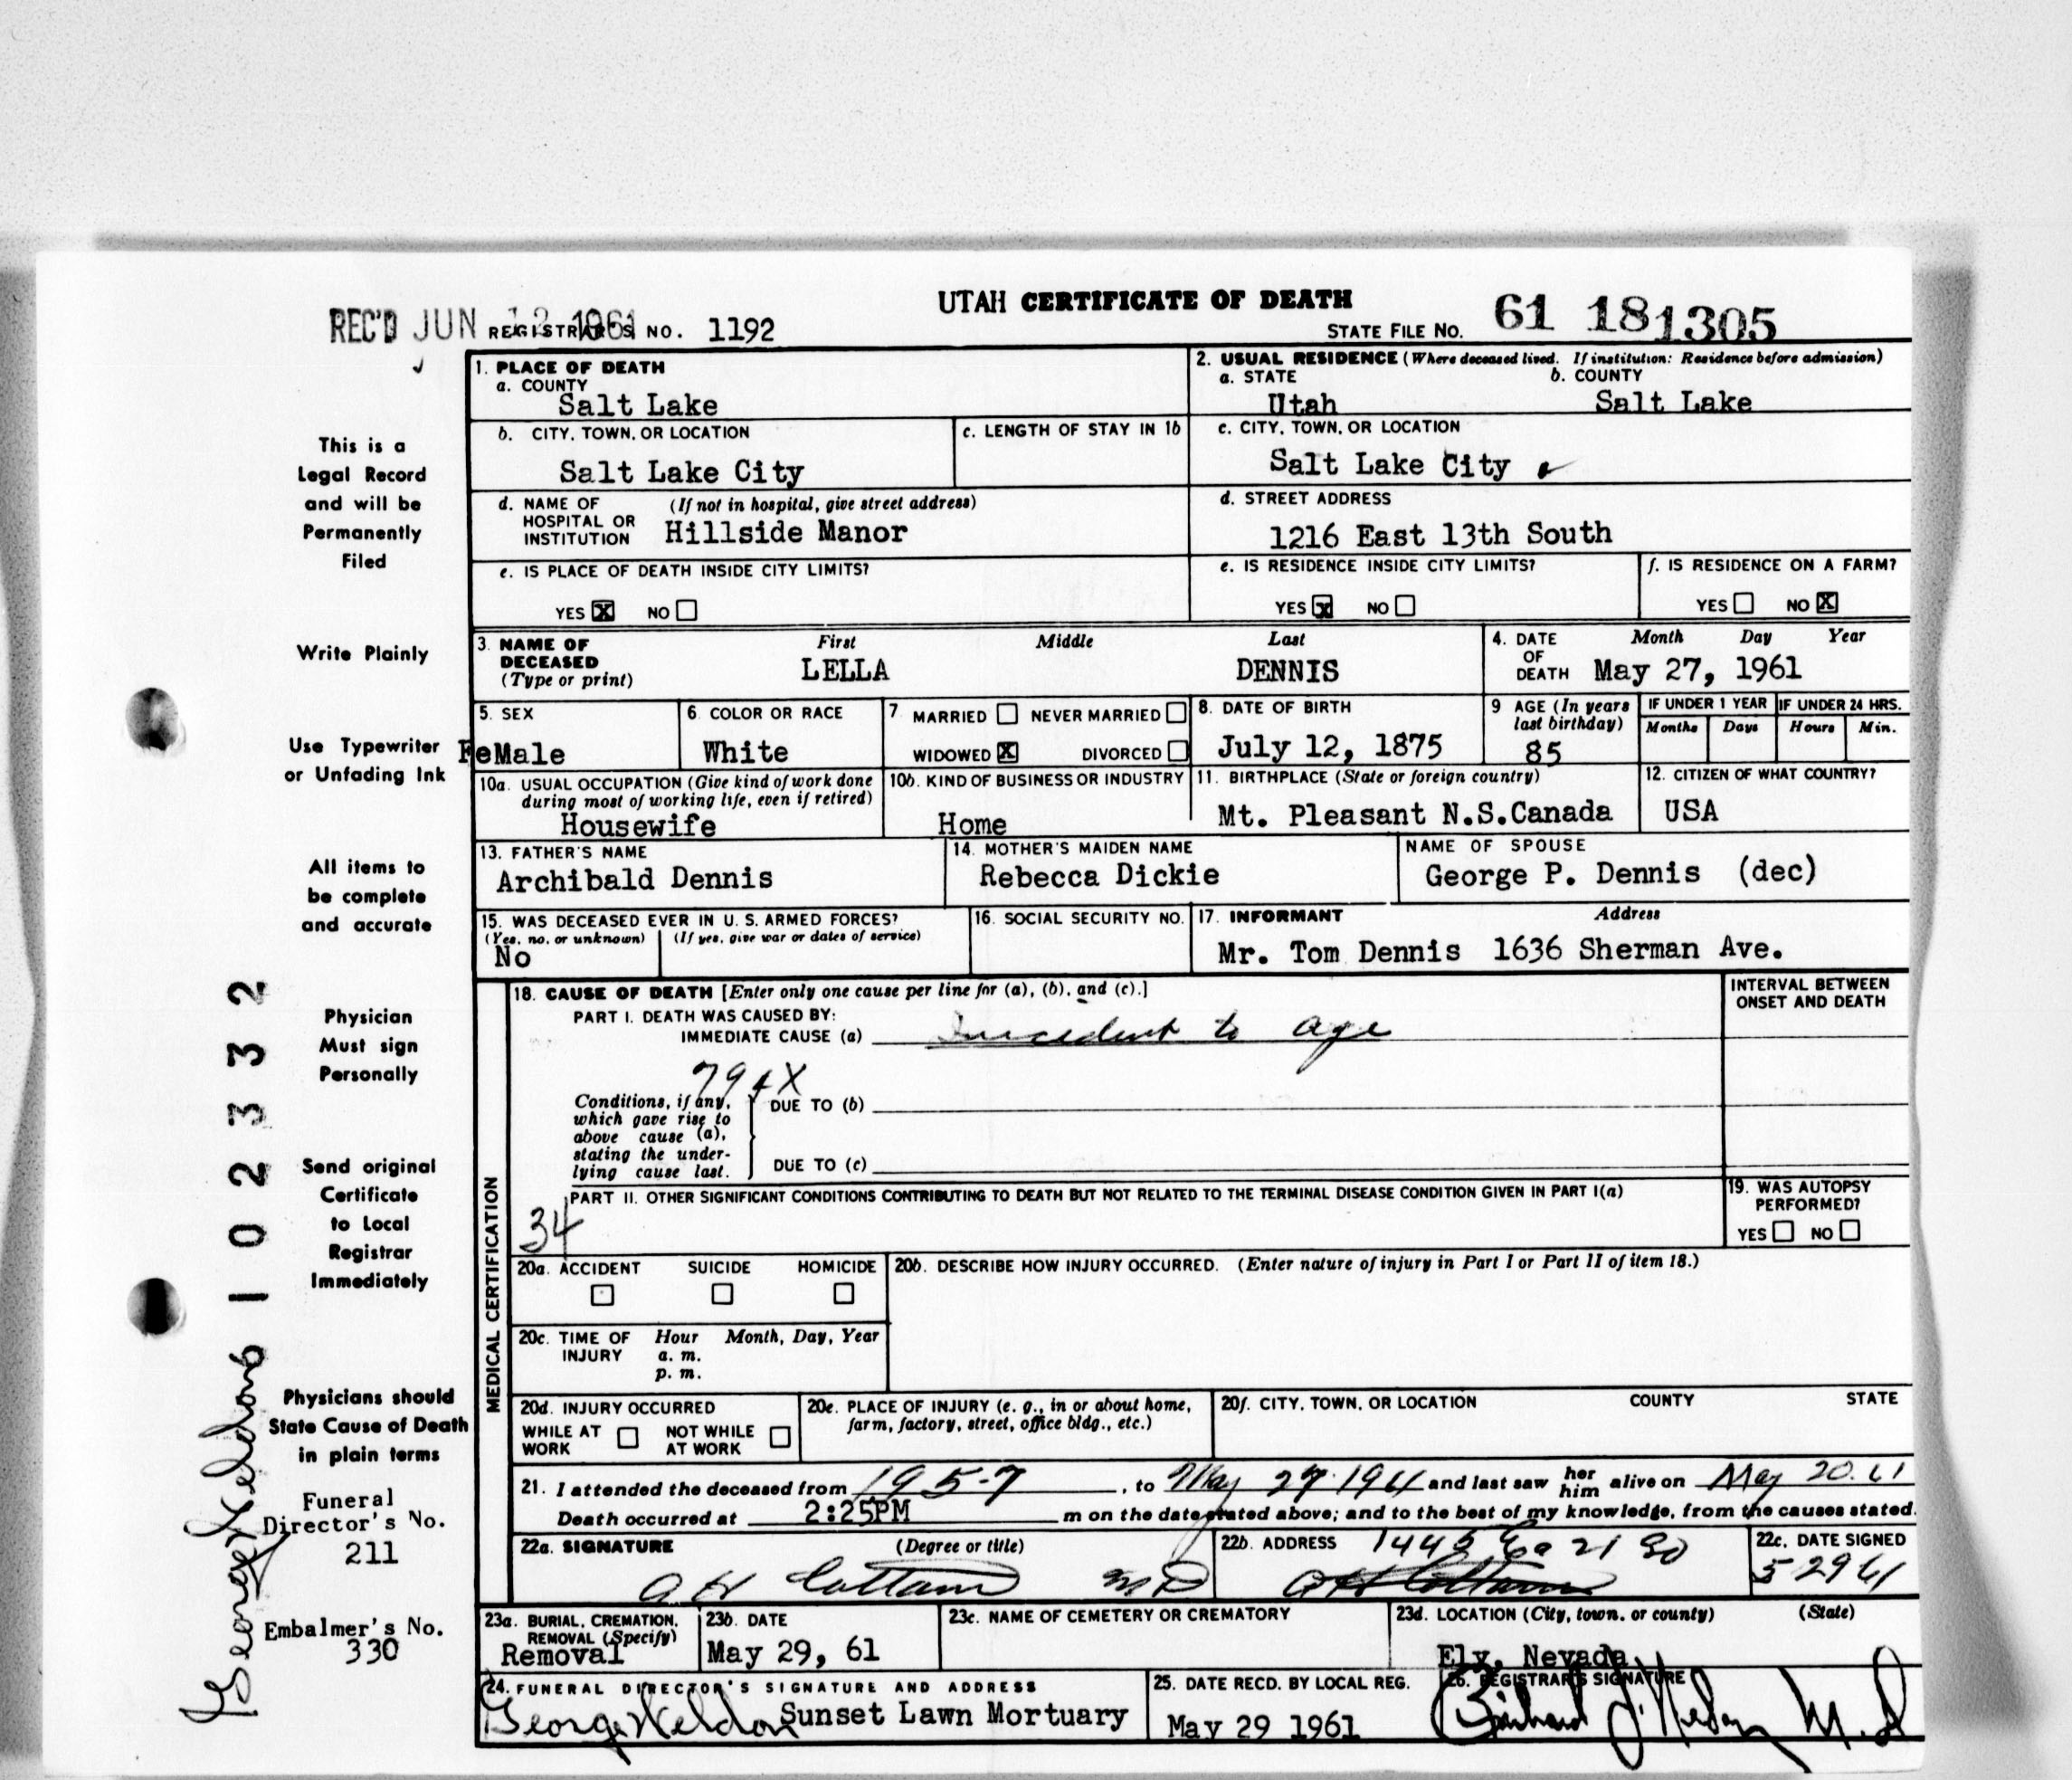 UTAH CERTIFICATE OF DEATH
REC'D JUN 1961 REGISTRAR'S NO. 1192
STATE FILE NO. 61 181305
1. PLACE OF DEATH
a. COUNTY
Salt Lake
2. USUAL RESIDENCE (Where deceased lived. If institution: Residence before admission)
a. STATE b. COUNTY
Utah Salt Lake
b. CITY, TOWN, OR LOCATION
Salt Lake City
c. LENGTH OF STAY IN 1b
c. CITY, TOWN, OR LOCATION
Salt Lake City
d. NAME OF HOSPITAL OR INSTITUTION (If not in hospital, give street address)
Hillside Manor
d. STREET ADDRESS
1216 East 13th South
e. IS PLACE OF DEATH INSIDE CITY LIMITS?
YES X NO
e. IS RESIDENCE INSIDE CITY LIMITS?
YES X NO
f. IS RESIDENCE ON A FARM?
YES NO X
3. NAME OF DECEASED (Type or print)
First Middle Last
LELLA DENNIS
4. DATE OF DEATH Month Day Year
May 27, 1961
5. SEX
FeMale
6. COLOR OR RACE
White
7. MARRIED NEVER MARRIED
WIDOWED X DIVORCED
8. DATE OF BIRTH
July 12, 1875
9 AGE (In years last birthday)
85
IF UNDER 1 YEAR
Months Days
IF UNDER 24 HRS.
Hours Min.
10a. USUAL OCCUPATION (Give kind of work done during most of working life, even if retired)
Housewife
10b. KIND OF BUSINESS OR INDUSTRY
Home
11. BIRTHPLACE (State or foreign country)
Mt. Pleasant N.S.Canada
12. CITIZEN OF WHAT COUNTRY?
USA
13. FATHER'S NAME
Archibald Dennis
14. MOTHER'S MAIDEN NAME
Rebecca Dickie
NAME OF SPOUSE
George P. Dennis (dec)
15. WAS DECEASED EVER IN U. S. ARMED FORCES?
(Yes, no, or unknown) (If yes, give war or dates of service)
No
16. SOCIAL SECURITY NO.
17. INFORMANT Address
Mr. Tom Dennis 1636 Sherman Ave.
MEDICAL CERTIFICATION
18. CAUSE OF DEATH [Enter only one cause per line for (a), (b), and (c).]
PART I. DEATH WAS CAUSED BY:
IMMEDIATE CAUSE (a) Incedent to age
794X
Conditions, if any, which gave rise to above cause (a), stating the underlying cause last.
DUE TO (b)
DUE TO (c)
INTERVAL BETWEEN ONSET AND DEATH
PART II. OTHER SIGNIFICANT CONDITIONS CONTRIBUTING TO DEATH BUT NOT RELATED TO THE TERMINAL DISEASE CONDITION GIVEN IN PART I(a)
34
19. WAS AUTOPSY PERFORMED?
YES NO
20a. ACCIDENT SUICIDE HOMICIDE
20b. DESCRIBE HOW INJURY OCCURRED. (Enter nature of injury in Part I or Part II of item 18.)
20c. TIME OF INJURY Hour Month, Day, Year
a. m.
p. m.
20d. INJURY OCCURRED
WHILE AT WORK NOT WHILE AT WORK
20e. PLACE OF INJURY (e. g., in or about home, farm, factory, street, office bldg., etc.)
20f. CITY, TOWN, OR LOCATION COUNTY STATE
21. I attended the deceased from 1957, to May 27 1961 and last saw her him alive on May 20. 61
Death occurred at 2:25PM m on the date stated above; and to the best of my knowledge, from the causes stated.
22a. SIGNATURE (Degree or title)
A H Cottam MD
22b. ADDRESS 1445 Ea 21 So
22c. DATE SIGNED
5 29 61
23a. BURIAL, CREMATION, REMOVAL (Specify)
Removal
23b. DATE
May 29, 61
23c. NAME OF CEMETERY OR CREMATORY
23d. LOCATION (City, town, or county) (State)
Ely, Nevada
24. FUNERAL DIRECTOR'S SIGNATURE AND ADDRESS
George Weldon Sunset Lawn Mortuary
25. DATE RECD. BY LOCAL REG.
May 29 1961
26. REGISTRAR'S SIGNATURE
This is a
Legal Record
and will be
Permanently
Filed
Write Plainly
Use Typewriter
or Unfading Ink
All items to
be complete
and accurate
Physician
Must sign
Personally
Send original
Certificate
to Local
Registrar
Immediately
Physicians should
State Cause of Death
in plain terms
Funeral
Director's No.
211
Embalmer's No.
330
102332